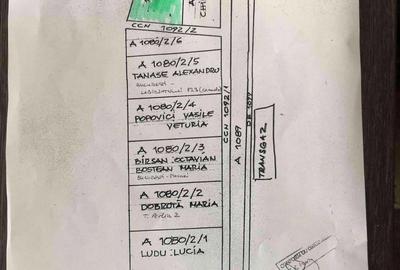 A
CCN 1092/2
A 1080/2/6
A 1080/2/5
TANASE ALEXANDRU
BUCURESTI
A 1080/2/4
POPOVICI VASILE
VETURIA
A 1080/2/3
BÎRSAN OCTAVIAN
BOSTEAN MARIA
A 1080/2/2
DOBROTĂ MARIA
A 1080/2/1
LUDU LUCIA
CCN 1092/1
A 1089
TRANSGAZ